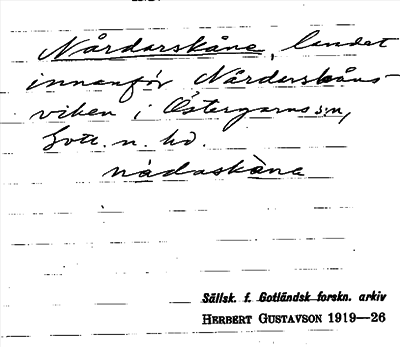 Nårdarskåne, landet
innanför Nårdarskåns-
viken i Östergarns sn,
Gotl. n. hd.
nådaskå̀ne
Sällsk. f. Gotländsk forskn. arkiv
HERBERT GUSTAVSON 1919—26